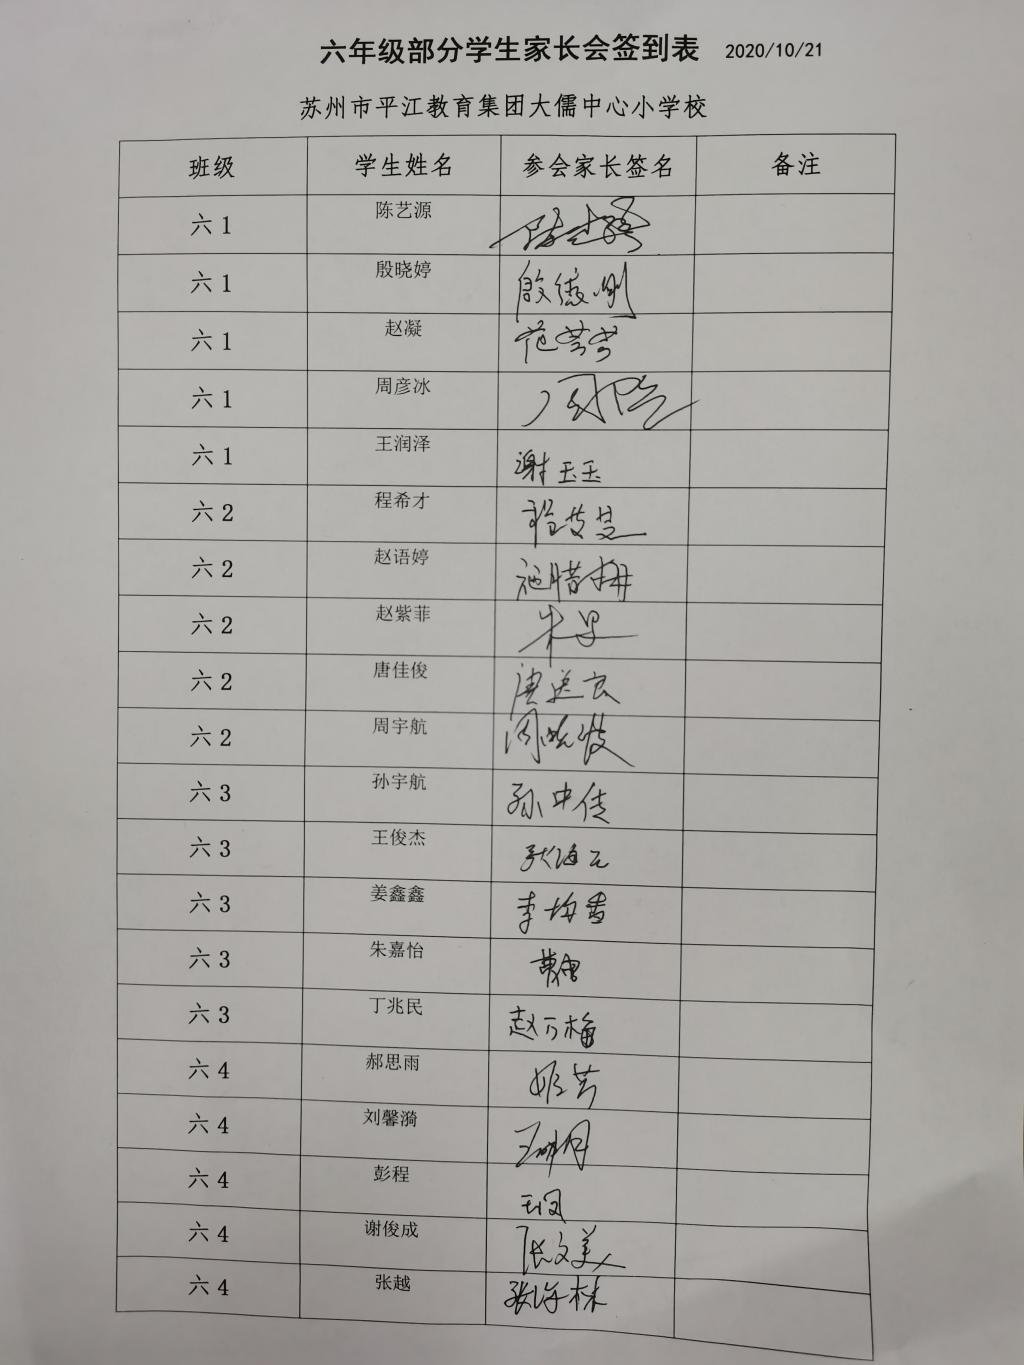 六年级部分学生家长会签到表 2020/10/21
苏州市平江教育集团大儒中心小学校
班级 学生姓名 参会家长签名 备注
六1 陈艺源
六1 殷晓婷
六1 赵凝 范芳芳
六1 周彦冰
六1 王润泽 谢玉玉
六2 程希才
六2 赵语婷
六2 赵紫菲
六2 唐佳俊
六2 周宇航
六3 孙宇航 孙中佳
六3 王俊杰
六3 姜鑫鑫 李梅香
六3 朱嘉怡
六3 丁兆民 赵万梅
六4 郝思雨 姬芳
六4 刘馨漪 王明月
六4 彭程
六4 谢俊成 张文美
六4 张越